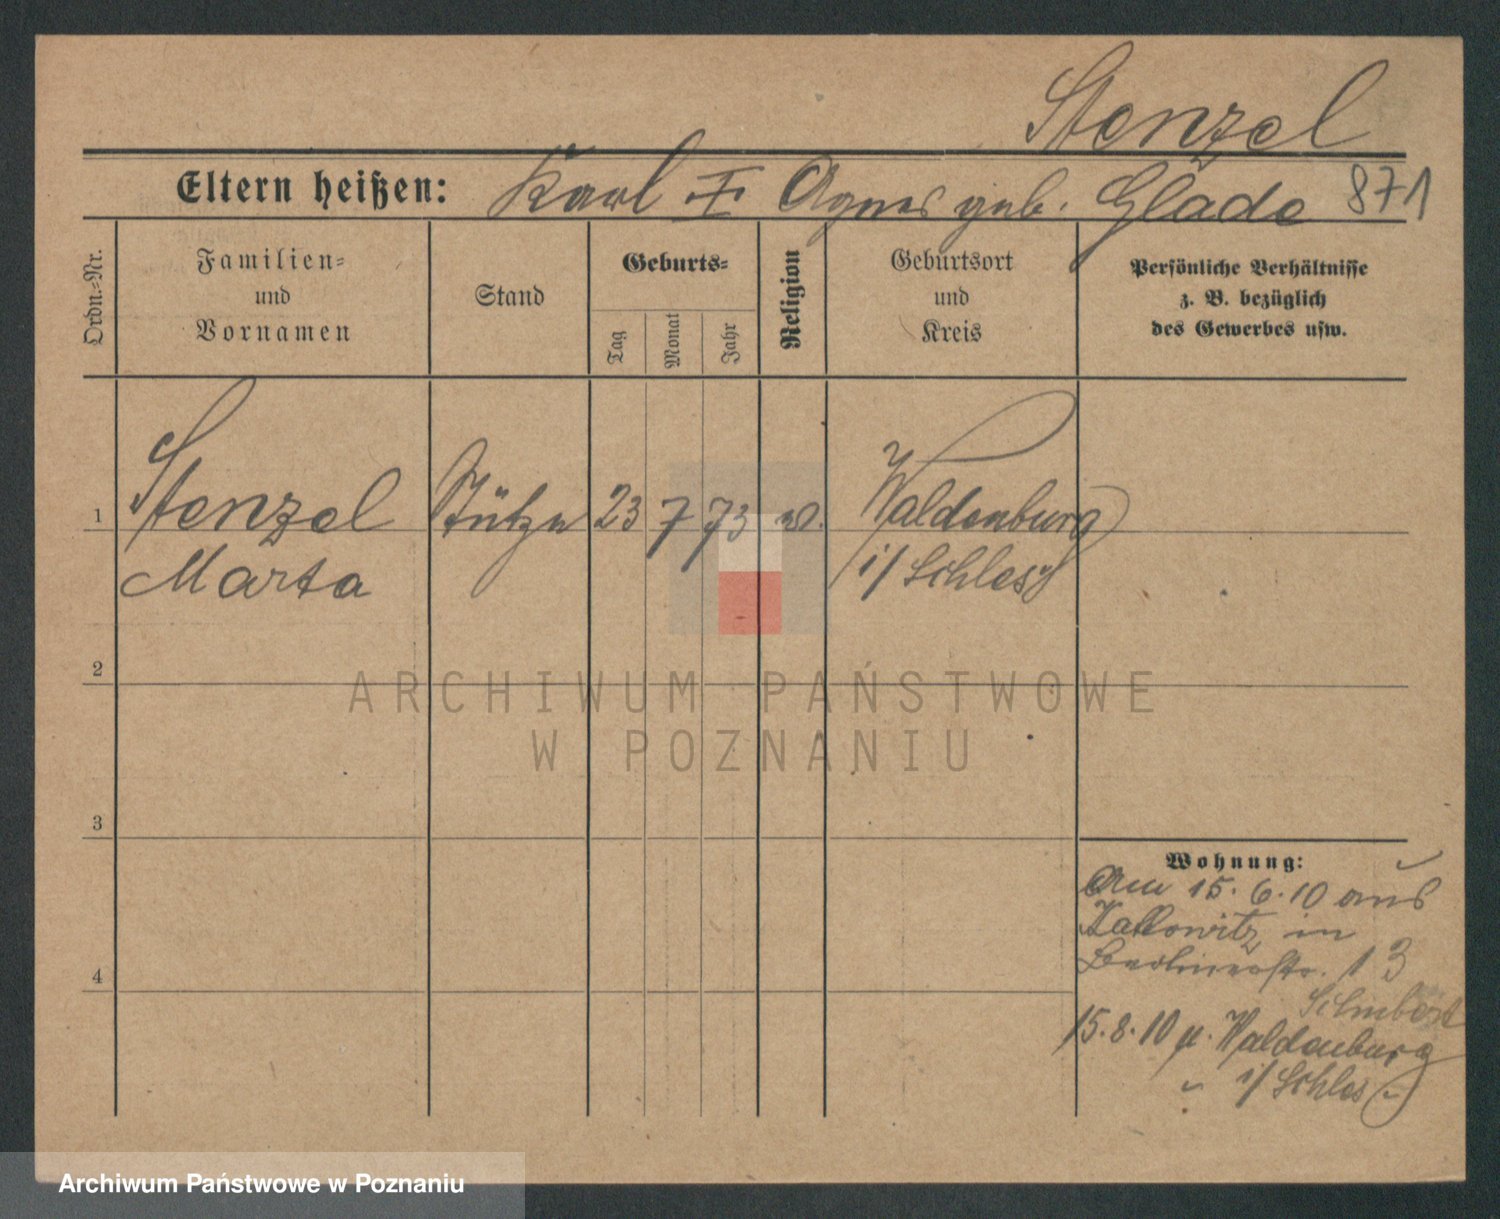 Stenzel
Eltern heißen: Karl I Agnes geb. Glade 871
Ordn.=Nr.
Familien=
und
Vornamen
Stand
Geburts=
Tag
Monat
Jahr
Religion
Geburtsort
und
Kreis
Persönliche Verhältnisse
z. B. bezüglich
des Gewerbes usw.
1
Stenzel
Marta
Stütze
23
7
73
Waldenburg
i/Schles
2
3
4
Wohnung:
Am 15. 6. 10 aus
Kattowitz in
Berlinerstr. 13
Schubert
15. 8. 10 n. Waldenburg
i/Schles
ARCHIWUM PAŃSTWOWE
W POZNANIU
Archiwum Państwowe w Poznaniu